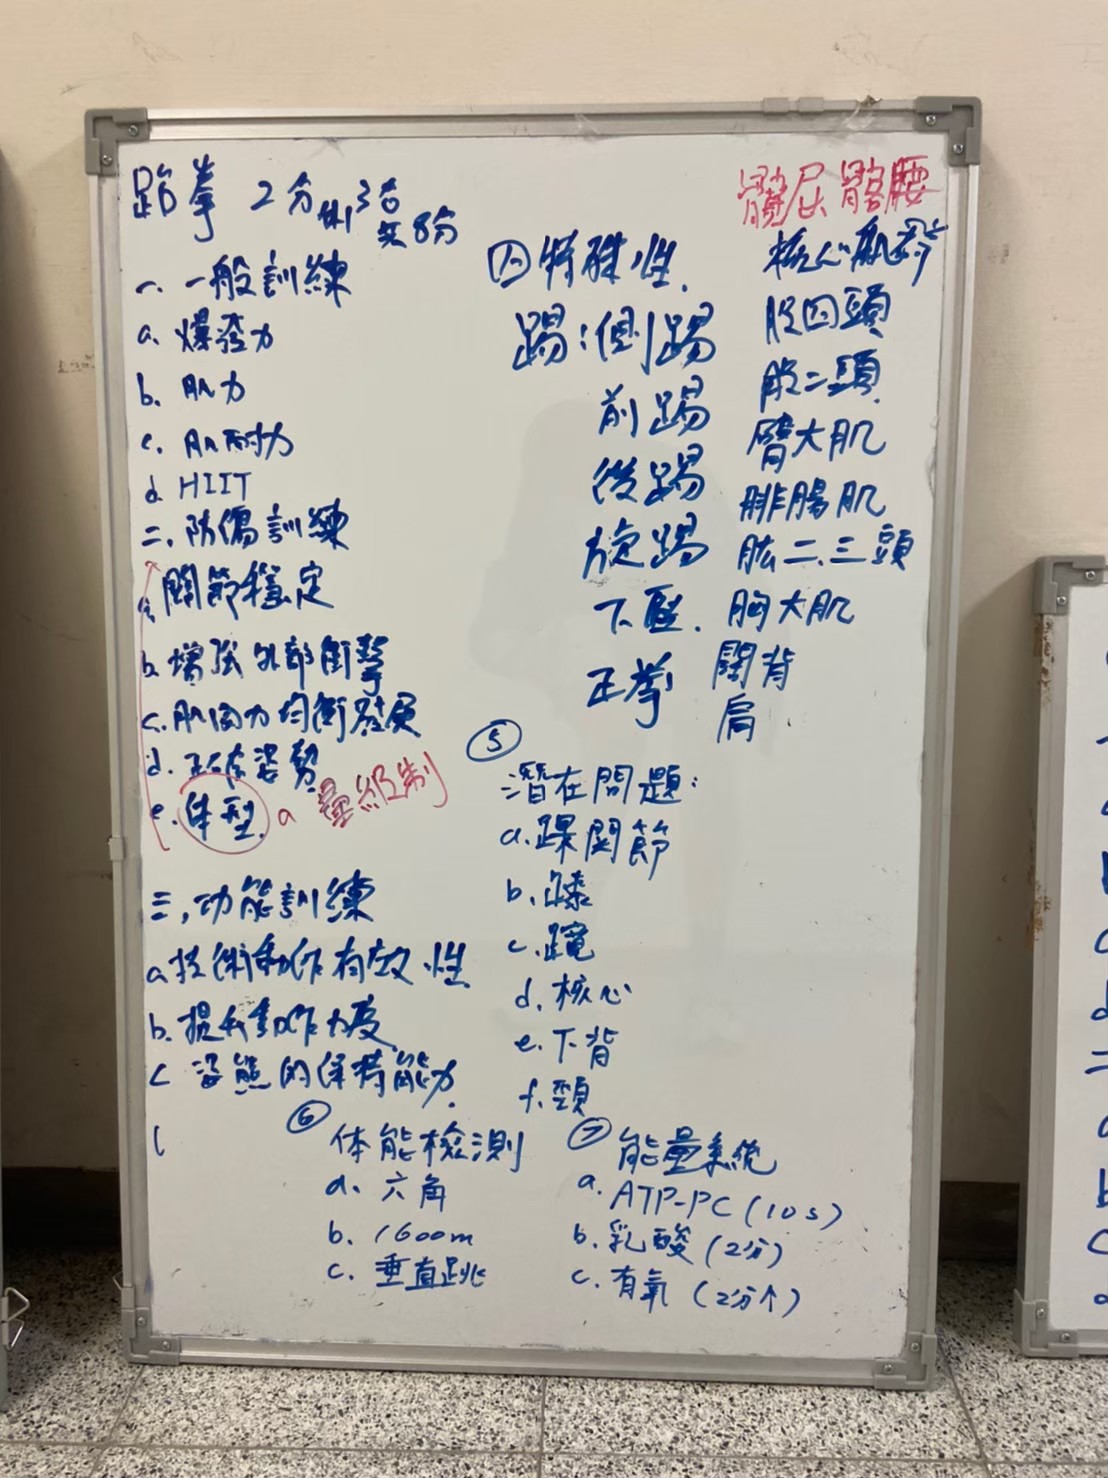 跆拳 2分制3合共8分
一、一般訓練
a. 爆發力
b. 肌力
c. 肌耐力
d. HIIT
二、防傷訓練
關節穩定
b. 增強外部衝擊
c. 肌肉力均衡發展
d. 正確姿勢
e. 体型 a 量級制
三、功能訓練
a. 技術動作有效性
b. 提升動作力度
c 姿態的保持能力.
四特殊性.
踢:側踢
前踢
後踢
旋踢
下壓.
正拳
髖屈 髂腰
核心肌群
股四頭
股二頭
臀大肌
腓腸肌
肱二、三頭
胸大肌
闊背
肩
⑤
潛在問題:
a. 踝關節
b. 膝
c. 髖
d. 核心
e. 下背
f. 頸
⑥ 体能檢測
a. 六角
b. 1600m
c. 垂直跳
⑦ 能量系統
a. ATP-PC (10s)
b. 乳酸 (2分)
c. 有氧 (2分↑)